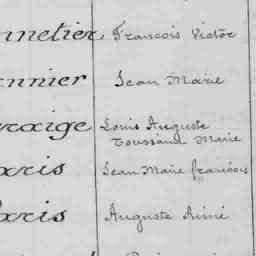 nnetier Francois Victor
nnier Jean Marie
raige Louis Auguste
Toussaint Marie
aris Jean Marie francois
aris Auguste Aimé